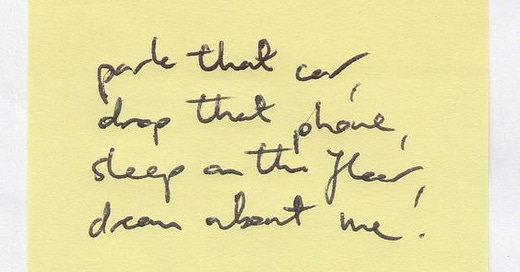 park that car,
drop that phone,
sleep on the floor,
dream about me!